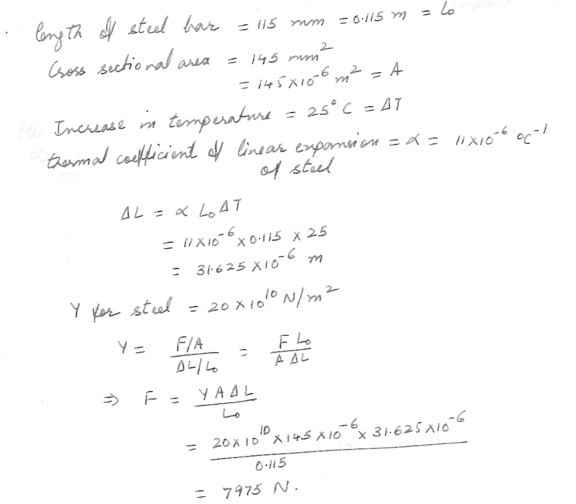 length of steel bar = 115 mm = 0.115 m = L₀
Cross sectional area = 145 mm²
= 145 x 10⁻⁶ m² = A
Increase in temperature = 25°C = ΔT
thermal coefficient of linear expansion = α = 11 x 10⁻⁶ °C⁻¹
of steel
ΔL = α L₀ ΔT
= 11 x 10⁻⁶ x 0.115 x 25
= 31.625 x 10⁻⁶ m
Y for steel = 20 x 10¹⁰ N/m²
Y = (F/A)/(ΔL/L₀) = F L₀/(A ΔL)
⇒ F = Y A ΔL/L₀
= (20 x 10¹⁰ x 145 x 10⁻⁶ x 31.625 x 10⁻⁶)/0.115
= 7975 N.